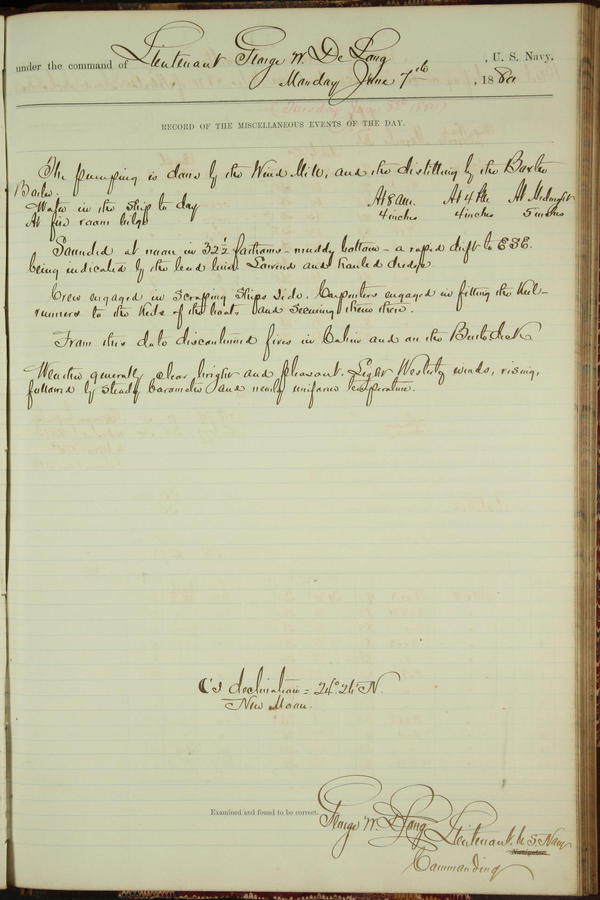 under the command of Lieutenant George W. De Long, U. S. Navy.
Monday June 7th, 1880
RECORD OF THE MISCELLANEOUS EVENTS OF THE DAY.
The pumping is done by the Wind Mill, and the distilling by the Baxter
Boiler.
Water in the ship to day At 8 am. At 4 PM. At Midnight
At fire room bilge 4 inches 4 inches 5 inches
Sounded at noon in 32½ fathoms - muddy bottom - a rapid drift to ESE.
being indicated by the lead line. Lowered and hauled dredge.
Crew engaged in scraping ships side. Carpenters engaged in fitting the keel-
runners to the keels of the boats and securing them there.
From this date discontinued fires in Cabin and on the Berth deck
Weather generally clear, bright and pleasant. Light Westerly winds, rising,
followed by steady barometer and nearly uniform temperature.
☾'s declination = 24° 26' N.
New Moon.
Examined and found to be correct.
George W. De Long Lieutenant U.S. Navy
Navigator.
Commanding